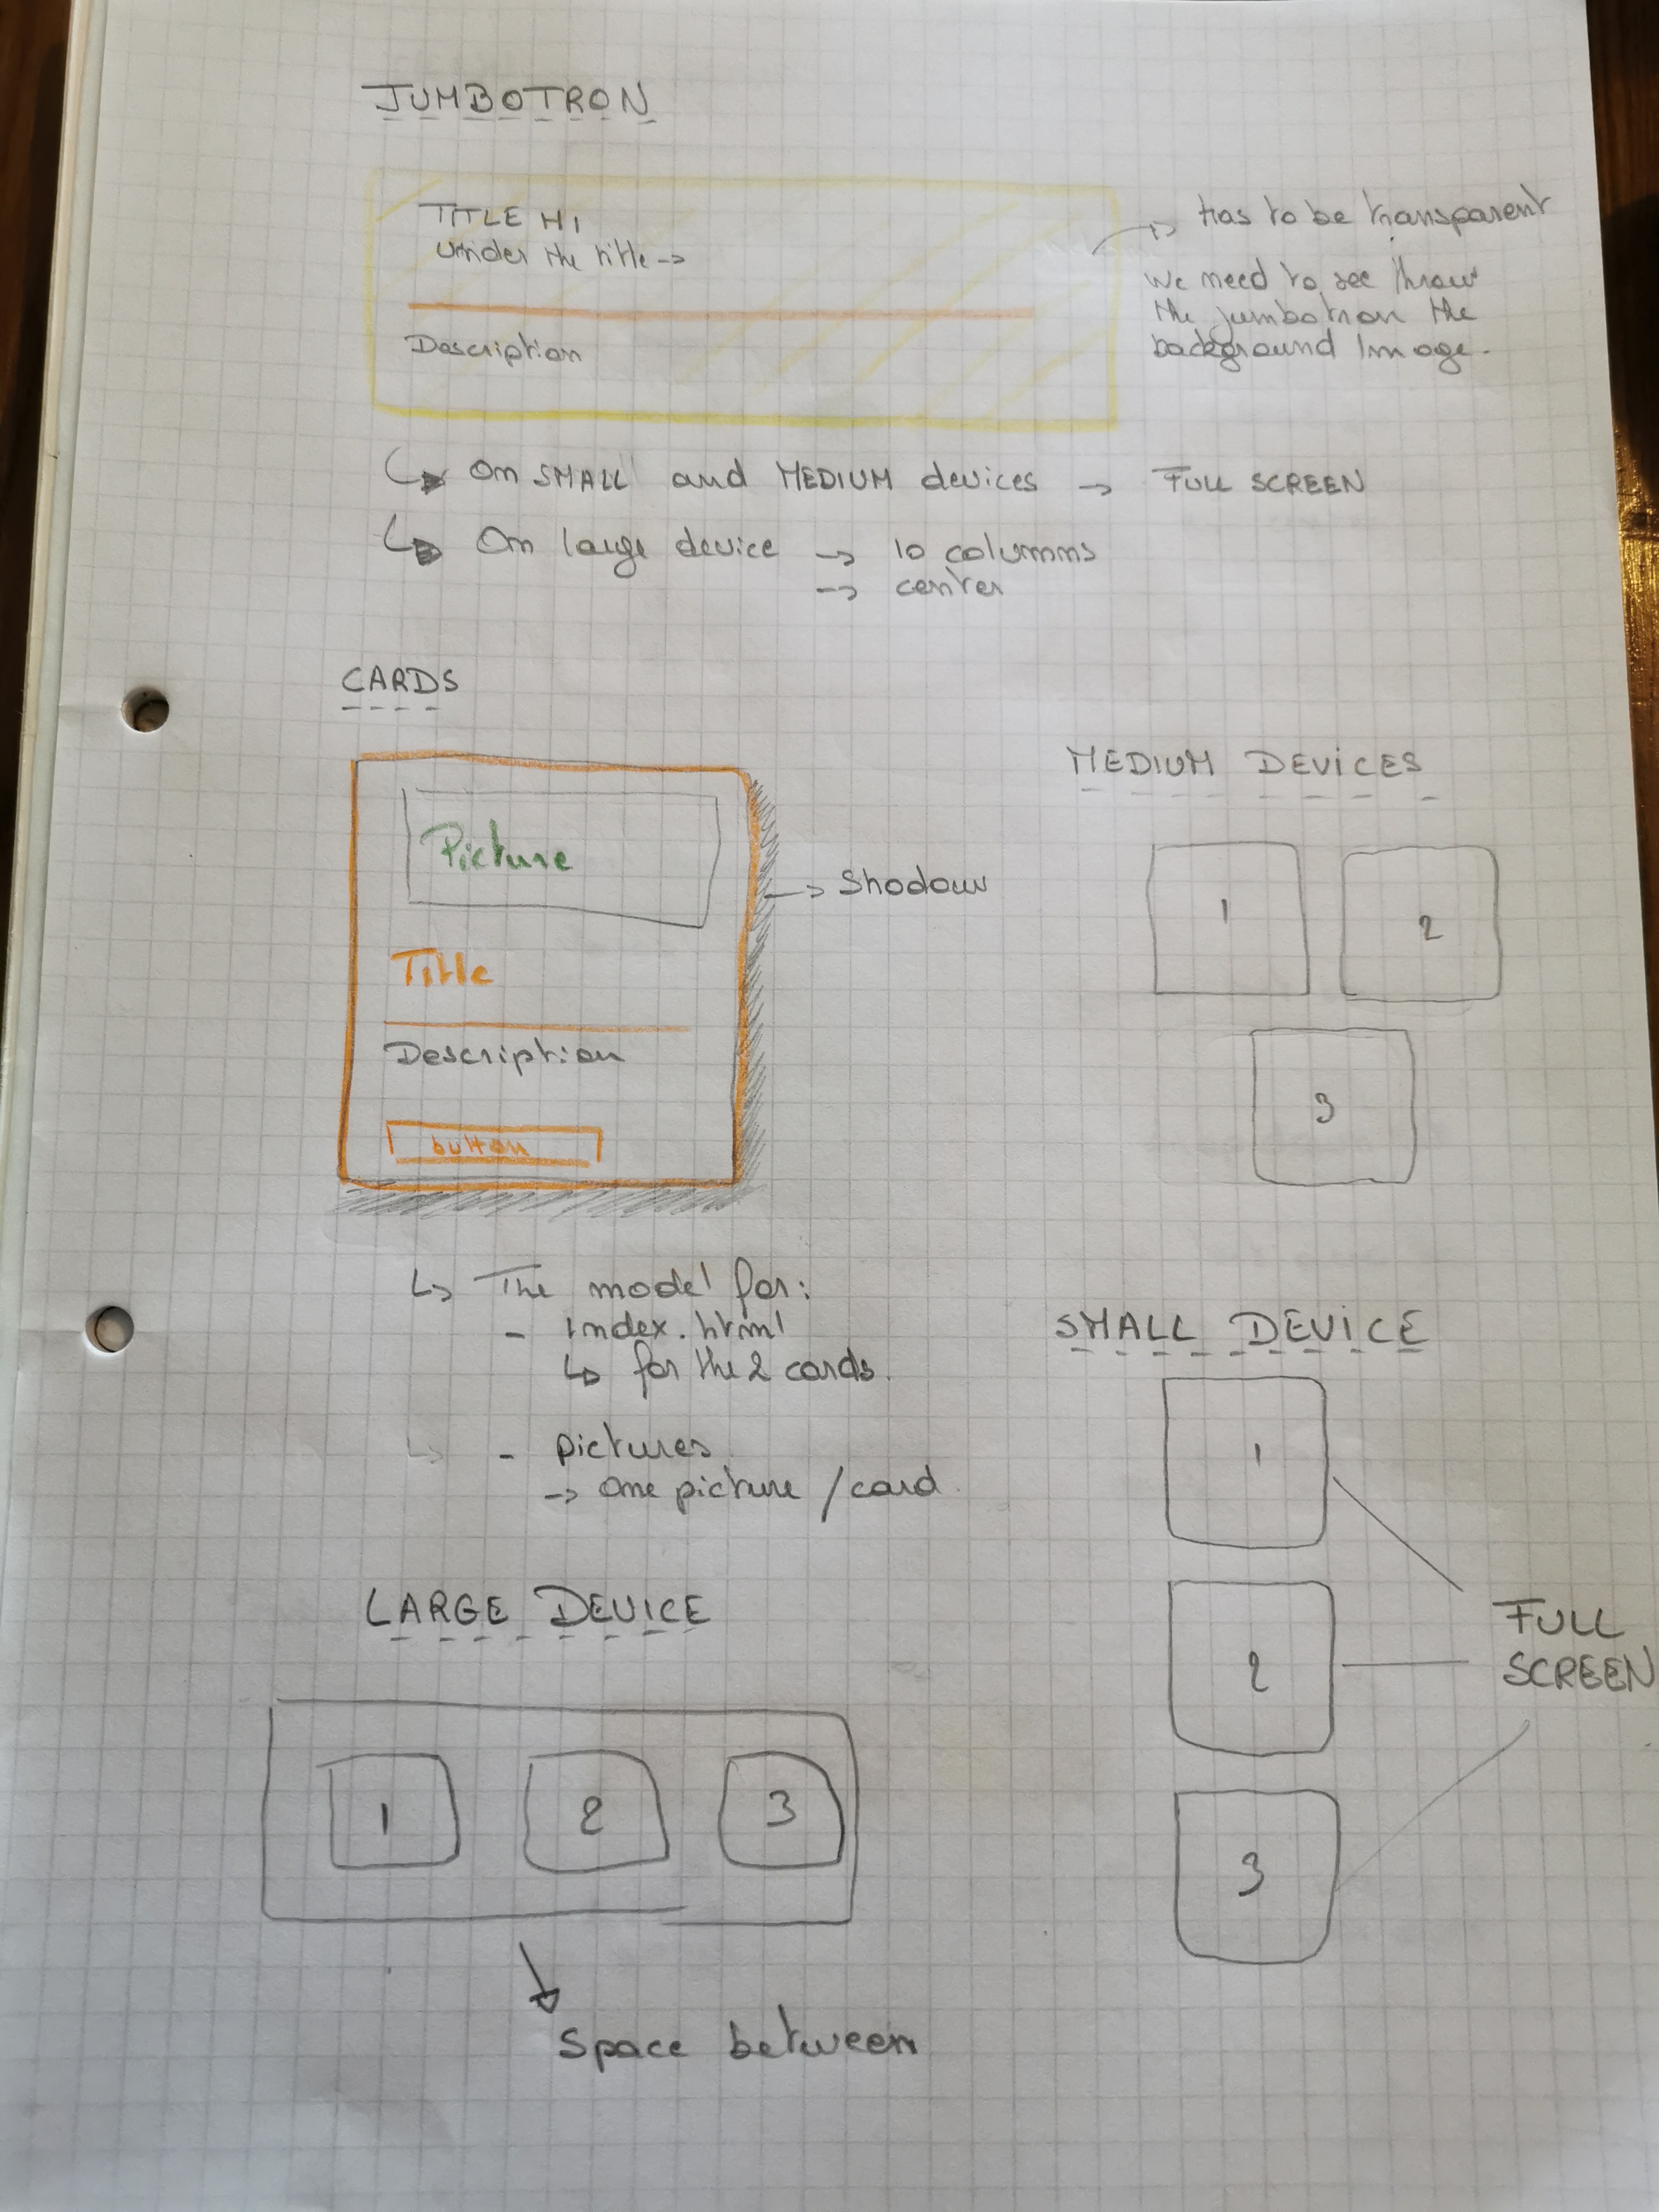 JUMBOTRON
TITLE H1
Under the title ->
Description
-> Has to be transparent
We need to see throw
the jumbotron the
background Image.
On SMALL and MEDIUM devices -> FULL SCREEN
On large device -> 10 columns
-> center
CARDS
Picture
Title
Description
button
-> Shadow
The model for:
- index.html
for the 2 cards.
- pictures
-> One picture / card
MEDIUM DEVICES
1
2
3
SMALL DEVICE
1
2
3
FULL
SCREEN
LARGE DEVICE
1 2 3
Space between